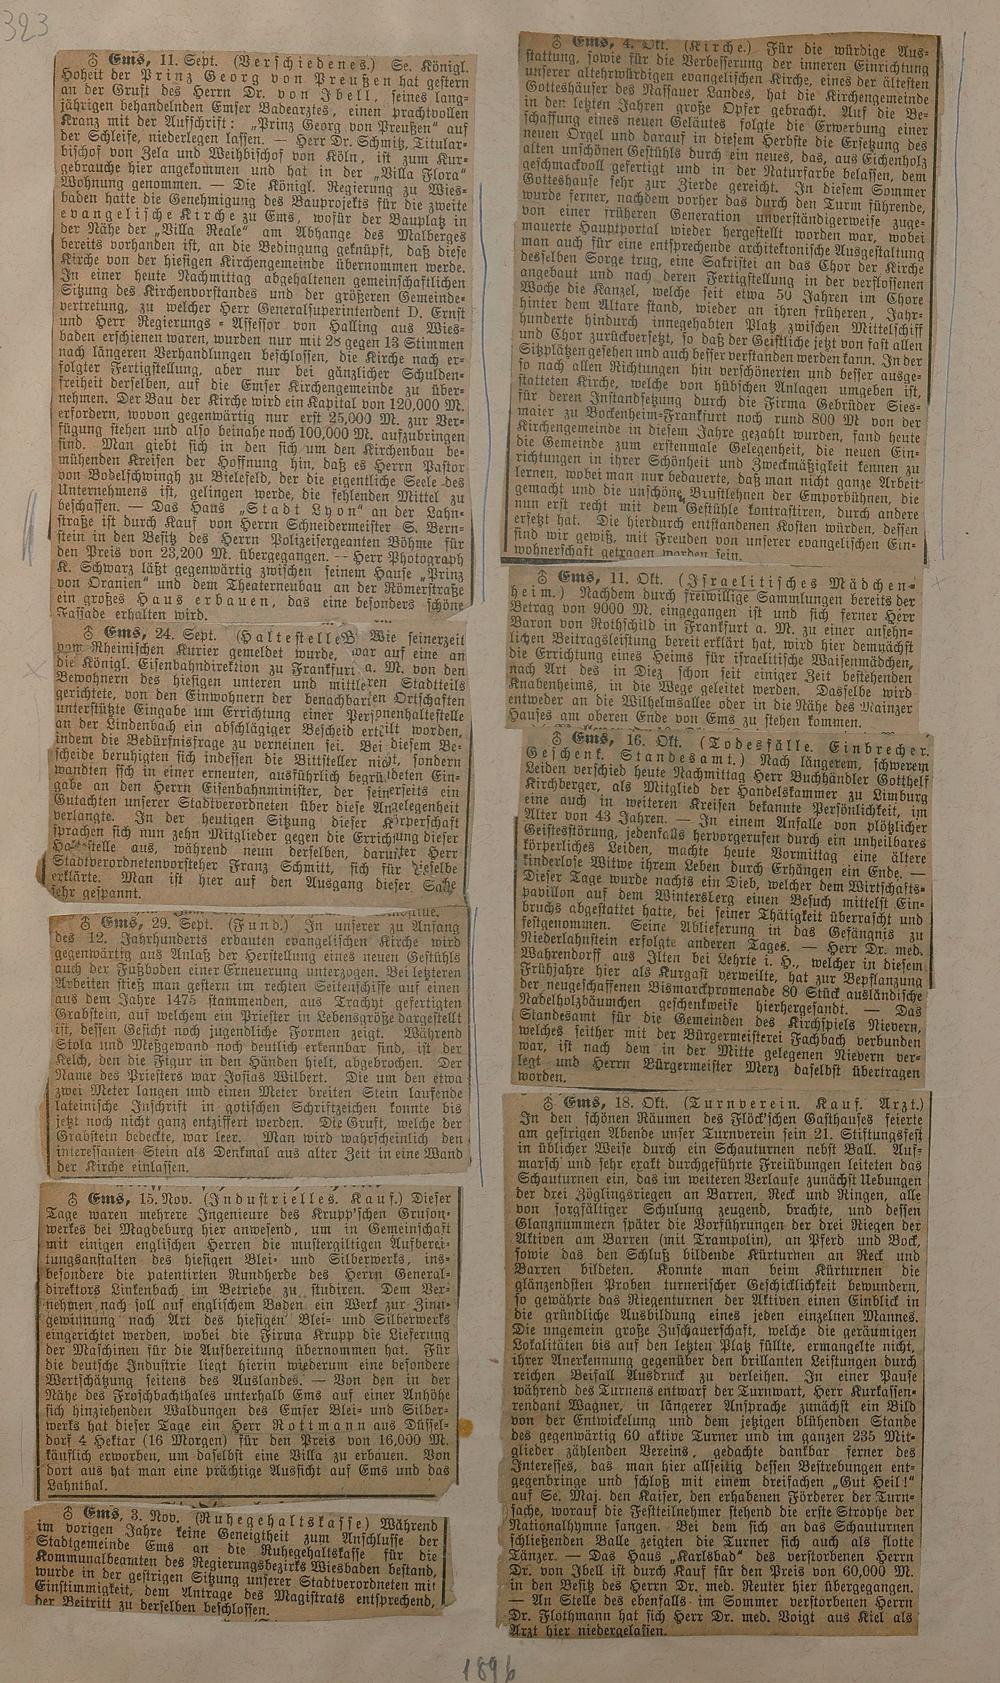 323
♂ Ems, 11. Sept. (Verschiedenes.) Se. Königl.
Hoheit der Prinz Georg von Preußen hat gestern
an der Gruft des Herrn Dr. von Ibell, seines lang-
jährigen behandelnden Emser Badearztes, einen prachtvollen
Kranz mit der Aufschrift: „Prinz Georg von Preußen“ auf
der Schleife, niederlegen lassen. — Herr Dr. Schmitz, Titular-
bischof von Zela und Weihbischof von Köln, ist zum Kur-
gebrauche hier angekommen und hat in der „Villa Flora“
Wohnung genommen. — Die Königl. Regierung zu Wies-
baden hatte die Genehmigung des Bauprojekts für die zweite
evangelische Kirche zu Ems, wofür der Bauplatz in
der Nähe der „Villa Reale“ am Abhange des Malberges
bereits vorhanden ist, an die Bedingung geknüpft, daß diese
Kirche von der hiesigen Kirchengemeinde übernommen werde.
In einer heute Nachmittag abgehaltenen gemeinschaftlichen
Sitzung des Kirchenvorstandes und der größeren Gemeinde-
vertretung, zu welcher Herr Generalsuperintendent D. Ernst
und Herr Regierungs-Assessor von Halling aus Wies-
baden erschienen waren, wurden nur mit 28 gegen 13 Stimmen
nach längeren Verhandlungen beschlossen, die Kirche nach er-
folgter Fertigstellung, aber nur bei gänzlicher Schulden-
freiheit derselben, auf die Emser Kirchengemeinde zu über-
nehmen. Der Bau der Kirche wird ein Kapital von 120,000 M.
erfordern, wovon gegenwärtig nur erst 25,000 M. zur Ver-
fügung stehen und also beinahe noch 100,000 M. aufzubringen
sind. Man giebt sich in den sich um den Kirchenbau be-
mühenden Kreisen der Hoffnung hin, daß es Herrn Pastor
von Bodelschwingh zu Bielefeld, der die eigentliche Seele des
Unternehmens ist, gelingen werde, die fehlenden Mittel zu
beschaffen. — Das Haus „Stadt Lyon“ an der Lahn-
straße ist durch Kauf von Herrn Schneidermeister S. Bern-
stein in den Besitz des Herrn Polizeisergeanten Böhme für
den Preis von 23,200 M. übergegangen. — Herr Photograph
K. Schwarz läßt gegenwärtig zwischen seinem Hause „Prinz
von Oranien“ und dem Theaterneubau an der Römerstraße
ein großes Haus erbauen, das eine besonders schöne
Fassade erhalten wird.
♂ Ems, 24. Sept. (Haltestelle.) Wie seinerzeit
vom Rheinischen Kurier gemeldet wurde, war auf eine an
die Königl. Eisenbahndirektion zu Frankfurt a. M. von den
Bewohnern des hiesigen unteren und mittleren Stadtteils
gerichtete, von den Einwohnern der benachbarten Ortschaften
unterstützte Eingabe um Errichtung einer Personenhaltestelle
an der Lindenbach ein abschlägiger Bescheid erteilt worden,
indem die Bedürfnisfrage zu verneinen sei. Bei diesem Be-
scheide beruhigten sich indessen die Bittsteller nicht, sondern
wandten sich in einer erneuten, ausführlich begründeten Ein-
gabe an den Herrn Eisenbahnminister, der seinerseits ein
Gutachten unserer Stadtverordneten über diese Angelegenheit
verlangte. In der heutigen Sitzung dieser Körperschaft
sprachen sich nun zehn Mitglieder gegen die Errichtung dieser
Haltestelle aus, während neun derselben, darunter Herr
Stadtverordnetenvorsteher Franz Schmitt, sich für dieselbe
erklärte. Man ist hier auf den Ausgang dieser Sache
sehr gespannt.
♂ Ems, 29. Sept. (Fund.) In unserer zu Anfang
des 12. Jahrhunderts erbauten evangelischen Kirche wird
gegenwärtig aus Anlaß der Herstellung eines neuen Gestühls
auch der Fußboden einer Erneuerung unterzogen. Bei letzteren
Arbeiten stieß man gestern im rechten Seitenschiffe auf einen
aus dem Jahre 1475 stammenden, aus Trachyt gefertigten
Grabstein, auf welchem ein Priester in Lebensgröße dargestellt
ist, dessen Gesicht noch jugendliche Formen zeigt. Während
Stola und Meßgewand noch deutlich erkennbar sind, ist der
Kelch, den die Figur in den Händen hielt, abgebrochen. Der
Name des Priesters war Josias Wilbert. Die um den etwa
zwei Meter langen und einen Meter breiten Stein laufende
lateinische Inschrift in gotischen Schriftzeichen konnte bis
jetzt noch nicht ganz entziffert werden. Die Gruft, welche der
Grabstein bedeckte, war leer. Man wird wahrscheinlich den
interessanten Stein als Denkmal aus alter Zeit in eine Wand
der Kirche einlassen.
♂ Ems, 15. Nov. (Industrielles. Kauf.) Dieser
Tage waren mehrere Ingenieure des Krupp'schen Gruson-
werkes bei Magdeburg hier anwesend, um in Gemeinschaft
mit einigen englischen Herren die mustergiltigen Aufberei-
tungsanstalten des hiesigen Blei- und Silberwerks, ins-
besondere die patentirten Rundherde des Herrn General-
direktors Linkenbach im Betriebe zu studiren. Dem Ver-
nehmen nach soll auf englischem Boden ein Werk zur Zinn-
gewinnung nach Art des hiesigen Blei- und Silberwerks
eingerichtet werden, wobei die Firma Krupp die Lieferung
der Maschinen für die Aufbereitung übernommen hat. Für
die deutsche Industrie liegt hierin wiederum eine besondere
Wertschätzung seitens des Auslandes. — Von den in der
Nähe des Froschbachthales unterhalb Ems auf einer Anhöhe
sich hinziehenden Waldungen des Emser Blei- und Silber-
werks hat dieser Tage ein Herr Rottmann aus Düssel-
dorf 4 Hektar (16 Morgen) für den Preis von 16,000 M.
käuflich erworben, um daselbst eine Villa zu erbauen. Von
dort aus hat man eine prächtige Aussicht auf Ems und das
Lahnthal.
♂ Ems, 3. Nov. (Ruhegehaltskasse) Während
im vorigen Jahre keine Geneigtheit zum Anschlusse der
Stadtgemeinde Ems an die Ruhegehaltskasse für die
Kommunalbeamten des Regierungsbezirks Wiesbaden bestand,
wurde in der gestrigen Sitzung unserer Stadtverordneten mit
Einstimmigkeit, dem Antrage des Magistrats entsprechend,
der Beitritt zu derselben beschlossen.
♂ Ems, 4. Okt. (Kirche.) Für die würdige Aus-
stattung, sowie für die Verbesserung der inneren Einrichtung
unserer altehrwürdigen evangelischen Kirche, eines der ältesten
Gotteshäuser des Nassauer Landes, hat die Kirchengemeinde
in den letzten Jahren große Opfer gebracht. Auf die Be-
schaffung eines neuen Geläutes folgte die Erwerbung einer
neuen Orgel und darauf in diesem Herbste die Ersetzung des
alten unschönen Gestühls durch ein neues, das, aus Eichenholz
geschmackvoll gefertigt und in der Naturfarbe belassen, dem
Gotteshause sehr zur Zierde gereicht. In diesem Sommer
wurde ferner, nachdem vorher das durch den Turm führende,
von einer früheren Generation unverständigerweise zuge-
mauerte Hauptportal wieder hergestellt worden war, wobei
man auch für eine entsprechende architektonische Ausgestaltung
desselben Sorge trug, eine Sakristei an das Chor der Kirche
angebaut und nach deren Fertigstellung in der verflossenen
Woche die Kanzel, welche seit etwa 50 Jahren im Chore
hinter dem Altare stand, wieder an ihren früheren, Jahr-
hunderte hindurch innegehabten Platz zwischen Mittelschiff
und Chor zurückversetzt, so daß der Geistliche jetzt von fast allen
Sitzplätzen gesehen und auch besser verstanden werden kann. In der
so nach allen Richtungen hin verschönerten und besser ausge-
statteten Kirche, welche von hübschen Anlagen umgeben ist,
für deren Instandsetzung durch die Firma Gebrüder Sies-
maier zu Bockenheim-Frankfurt noch rund 800 M von der
Kirchengemeinde in diesem Jahre gezahlt wurden, fand heute
die Gemeinde zum erstenmale Gelegenheit, die neuen Ein-
richtungen in ihrer Schönheit und Zweckmäßigkeit kennen zu
lernen, wobei man nur bedauerte, daß man nicht ganze Arbeit
gemacht und die unschöne Brustlehnen der Emporbühnen, die
nun erst recht mit dem Gestühle kontrastiren, durch andere
ersetzt hat. Die hierdurch entstandenen Kosten würden, dessen
sind wir gewiß, mit Freuden von unserer evangelischen Ein-
wohnerschaft getragen worden sein.
♂ Ems, 11. Okt. (Israelitisches Mädchen-
heim.) Nachdem durch freiwillige Sammlungen bereits der
Betrag von 9000 M. eingegangen ist und sich ferner Herr
Baron von Rothschild in Frankfurt a. M. zu einer ansehn-
lichen Beitragsleistung bereit erklärt hat, wird hier demnächst
die Errichtung eines Heims für israelitische Waisenmädchen,
nach Art des in Diez schon seit einiger Zeit bestehenden
Knabenheims, in die Wege geleitet werden. Dasselbe wird
entweder an die Wilhelmsallee oder in die Nähe des Mainzer
Hauses am oberen Ende von Ems zu stehen kommen.
♂ Ems, 16. Okt. (Todesfälle. Einbrecher.
Geschenk. Standesamt.) Nach längerem, schwerem
Leiden verschied heute Nachmittag Herr Buchhändler Gotthelf
Kirchberger, als Mitglied der Handelskammer zu Limburg
eine auch in weiteren Kreisen bekannte Persönlichkeit, im
Alter von 43 Jahren. — In einem Anfalle von plötzlicher
Geistesstörung, jedenfalls hervorgerufen durch ein unheilbares
körperliches Leiden, machte heute Vormittag eine ältere
kinderlose Witwe ihrem Leben durch Erhängen ein Ende. —
Dieser Tage wurde nachts ein Dieb, welcher dem Wirtschafts-
pavillon auf dem Wintersberg einen Besuch mittelst Ein-
bruchs abgestattet hatte, bei seiner Thätigkeit überrascht und
festgenommen. Seine Ablieferung in das Gefängnis zu
Niederlahnstein erfolgte anderen Tages. — Herr Dr. med.
Wahrendorff aus Ilten bei Lehrte i. H., welcher in diesem
Frühjahre hier als Kurgast verweilte, hat zur Bepflanzung
der neugeschaffenen Bismarckpromenade 80 Stück ausländische
Nadelholzbäumchen geschenkweise hierhergesandt. — Das
Standesamt für die Gemeinden des Kirchspiels Nievern,
welches seither mit der Bürgermeisterei Fachbach verbunden
war, ist nach dem in der Mitte gelegenen Nievern ver-
legt und Herrn Bürgermeister Merz daselbst übertragen
worden.
♂ Ems, 18. Okt. (Turnverein. Kauf. Arzt.)
In den schönen Räumen des Flöck'schen Gasthauses feierte
am gestrigen Abende unser Turnverein sein 21. Stiftungsfest
in üblicher Weise durch ein Schauturnen nebst Ball. Auf-
marsch und sehr exakt durchgeführte Freiübungen leiteten das
Schauturnen ein, das im weiteren Verlaufe zunächst Uebungen
der drei Zöglingsriegen an Barren, Reck und Ringen, alle
von sorgfältiger Schulung zeugend, brachte, und dessen
Glanznummern später die Vorführungen der drei Riegen der
Aktiven am Barren (mit Trampolin), an Pferd und Bock,
sowie das den Schluß bildende Kürturnen an Reck und
Barren bildeten. Konnte man beim Kürturnen die
glänzendsten Proben turnerischer Geschicklichkeit bewundern,
so gewährte das Riegenturnen der Aktiven einen Einblick in
die gründliche Ausbildung eines jeden einzelnen Mannes.
Die ungemein große Zuschauerschaft, welche die geräumigen
Lokalitäten bis auf den letzten Platz füllte, ermangelte nicht,
ihrer Anerkennung gegenüber den brillanten Leistungen durch
reichen Beifall Ausdruck zu verleihen. In einer Pause
während des Turnens entwarf der Turnwart, Herr Kurkassen-
rendant Wagner, in längerer Ansprache zunächst ein Bild
von der Entwickelung und dem jetzigen blühenden Stande
des gegenwärtig 60 aktive Turner und im ganzen 235 Mit-
glieder zählenden Vereins, gedachte dankbar ferner des
Interesses, das man hier allseitig dessen Bestrebungen ent-
gegenbringe und schloß mit einem dreifachen „Gut Heil!“
auf Se. Maj. den Kaiser, den erhabenen Förderer der Turn-
sache, worauf die Festteilnehmer stehend die erste Strophe der
Nationalhymne sangen. Bei dem sich an das Schauturnen
schließenden Balle zeigten die Turner sich auch als flotte
Tänzer. — Das Haus „Karlsbad“ des verstorbenen Herrn
Dr. von Ibell ist durch Kauf für den Preis von 60,000 M.
in den Besitz des Herrn Dr. med. Reuter hier übergegangen.
— An Stelle des ebenfalls im Sommer verstorbenen Herrn
Dr. Flothmann hat sich Herr Dr. med. Voigt aus Kiel als
Arzt hier niedergelassen.
1896